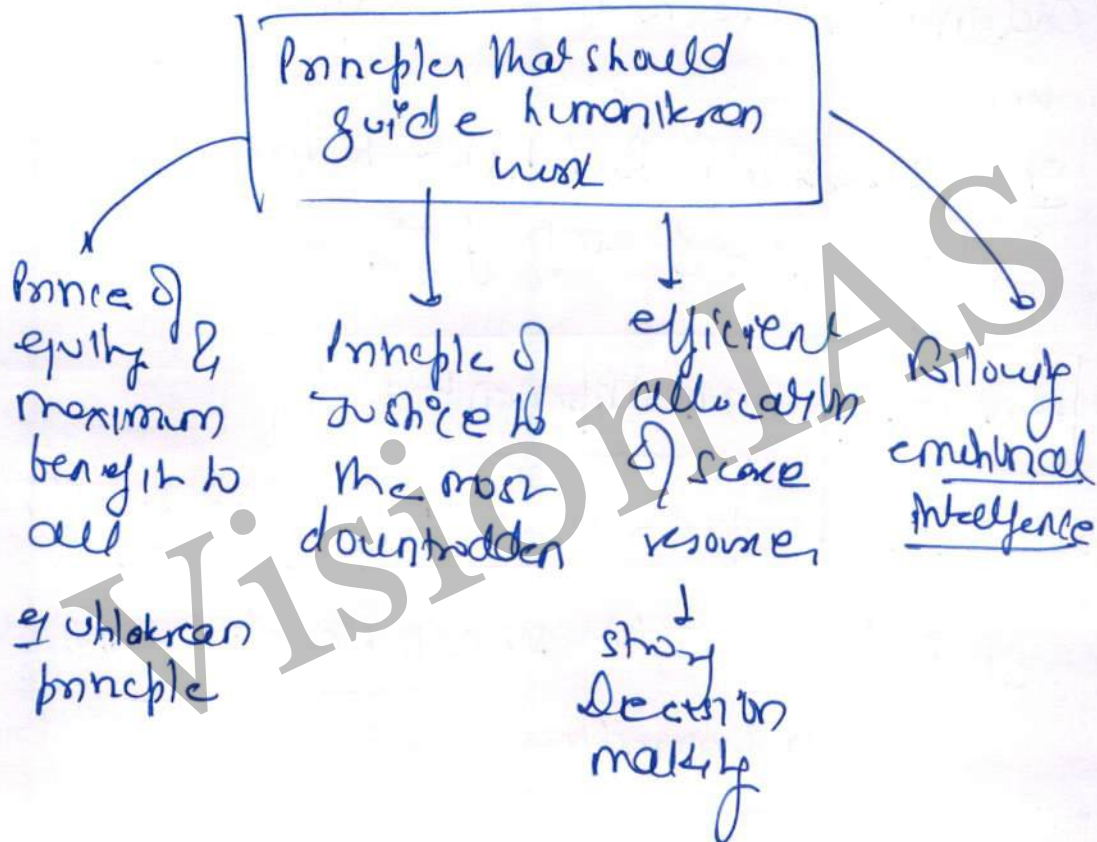 Principles that should
guide humanitarian
work
Prince of
equity &
maximum
benefit to
all
eg utilitarian
principle
Principle of
Justice to
the most
downtrodden
efficient
allocation
of scarce
resources
strong
Decision
making
following
emotional
intelligence
VisionIAS